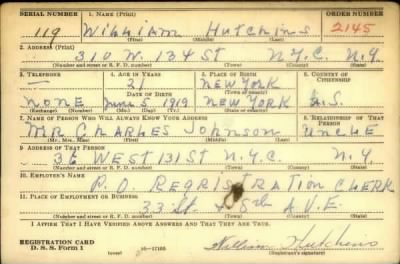 SERIAL NUMBER 1. NAME (Print) ORDER NUMBER
119 William Hutchins 2145
(First) (Middle) (Last)
2. ADDRESS (Print)
310 W. 134 ST N.Y.C. N.Y.
(Number and street or R. F. D. number) (Town) (County) (State)
3. TELEPHONE 4. AGE IN YEARS 5. PLACE OF BIRTH 6. COUNTRY OF CITIZENSHIP
— 21 NEW YORK
DATE OF BIRTH (Town or county)
NONE June 5 1919 NEW YORK U.S.
(Exchange) (Number) (Mo.) (Day) (Yr.) (State or country)
7. NAME OF PERSON WHO WILL ALWAYS KNOW YOUR ADDRESS 8. RELATIONSHIP OF THAT PERSON
MR CHARLES JOHNSON UNCLE
(Mr., Mrs., Miss) (First) (Middle) (Last)
9. ADDRESS OF THAT PERSON
36 WEST 131 ST N.Y.C. N.Y.
(Number and street or R. F. D. number) (Town) (County) (State)
10. EMPLOYER'S NAME
P.O. REGRISTRATION CLERK
11. PLACE OF EMPLOYMENT OR BUSINESS
33 St. + 8th A.V.E.
(Number and street or R. F. D. number) (Town) (County) (State)
I AFFIRM THAT I HAVE VERIFIED ABOVE ANSWERS AND THAT THEY ARE TRUE.
REGISTRATION CARD
D. S. S. Form 1 (over) William Hutchins
(Registrant's signature)